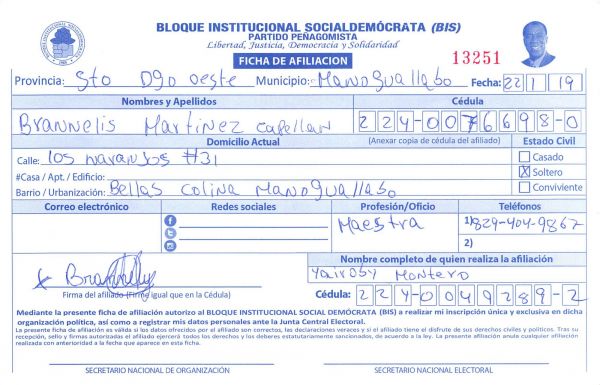 BLOQUE INSTITUCIONAL SOCIALDEMÓCRATA (BIS)
PARTIDO PEÑAGOMISTA
Libertad, Justicia, Democracia y Solidaridad
FICHA DE AFILIACION
13251
Provincia: Sto Dgo oeste Municipio: Manoguallabo Fecha: 22 1 19
Nombres y Apellidos Cédula
Brannelis Martinez Capellan 224-0076698-0
Domicilio Actual (Anexar copia de cédula del afiliado) Estado Civil
Calle: los naranjos #31 Casado
#Casa / Apt. / Edificio: X Soltero
Barrio / Urbanización: Bellas Colina Manoguallabo Conviviente
Correo electrónico Redes sociales Profesión/Oficio Teléfonos
Maestra 1) 829-404-9867
2)
Nombre completo de quien realiza la afiliación
Yairoby Montero
Firma del afiliado (Firme igual que en la Cédula) Cédula: 224-0049289-2
Mediante la presente ficha de afiliación autorizo al BLOQUE INSTITUCIONAL SOCIAL DEMÓCRATA (BIS) a realizar mi inscripción única y exclusiva en dicha
organización política, así como a registrar mis datos personales ante la Junta Central Electoral.
La presente ficha de afiliación es válida si los datos ofrecidos por el afiliado son correctos, las declaraciones veraces y si el afiliado tiene el disfrute de sus derechos civiles y políticos. Tras su
recepción, sello y firmas autorizadas el afiliado ejercerá todos los derechos y los deberes estatutariamente sancionados, de acuerdo a la ley. La presente afiliación anula cualquier afiliación
realizada con anterioridad a la fecha que aparece en esta ficha.
SECRETARIO NACIONAL DE ORGANIZACIÓN SECRETARIO NACIONAL ELECTORAL